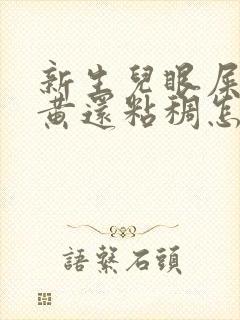 新生兒眼屎
黃還粘稠怎
語繫石頭